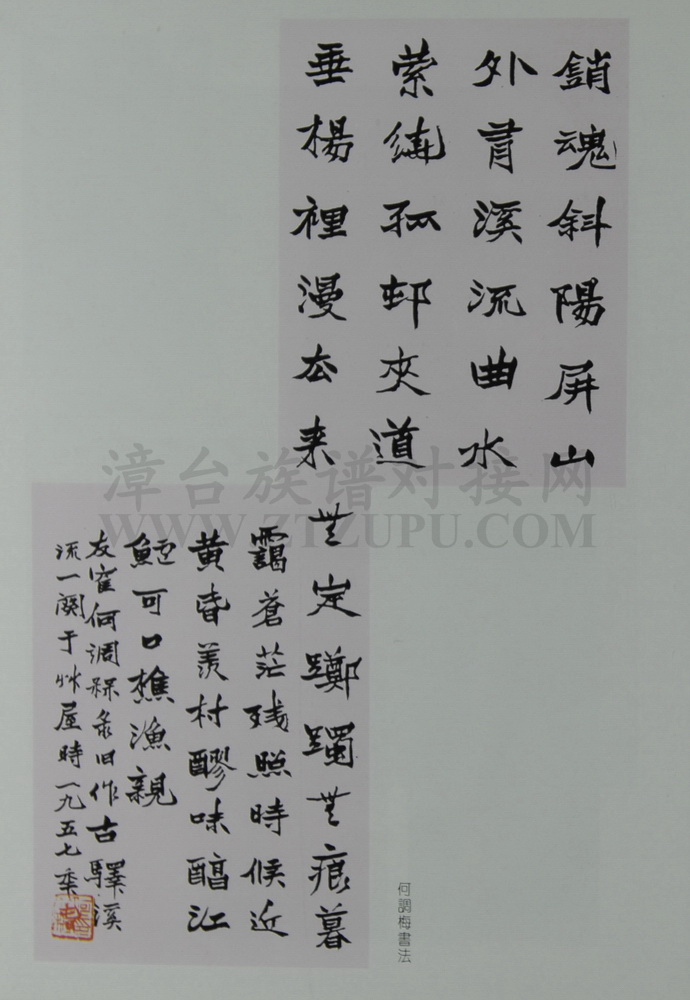 銷魂斜陽屏山
外背溪流曲水
縈繞孤邨夾道
垂楊裡漫去来
無定躑躅無痕暮
靄蒼茫残照時候近
黄昏羨村醪味醇江
魚可口樵漁親
友寉何調槑录旧作古驛溪
流一闋于艸屋時一九五七季
何調梅書法
漳台族谱对接网
WWW.ZTZUPU.COM